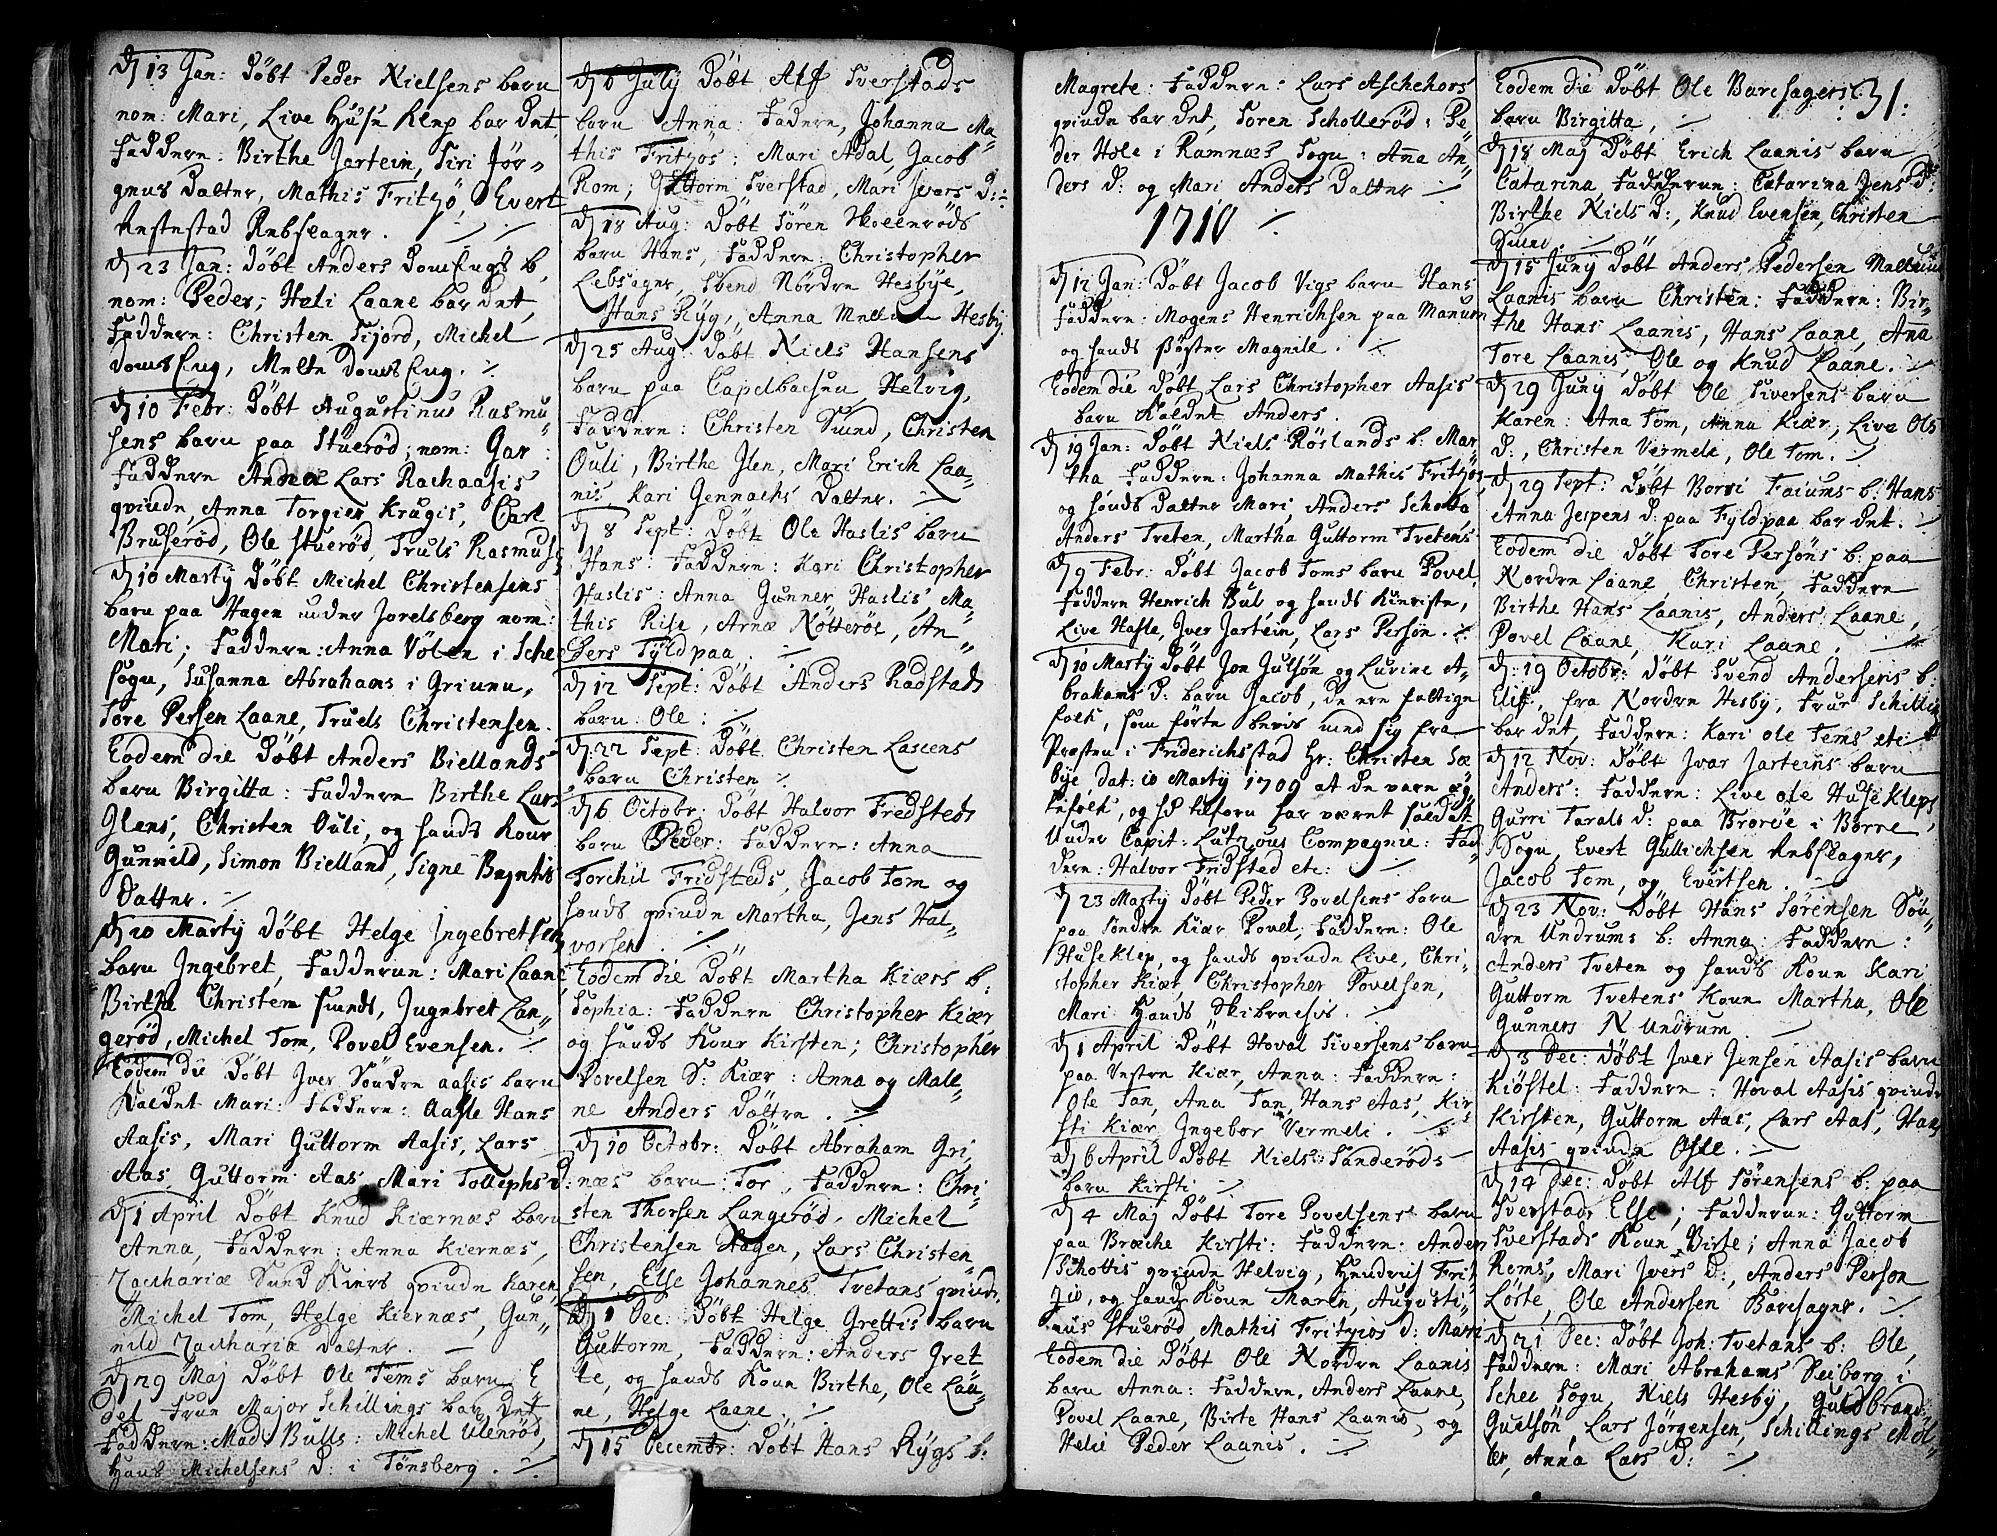 d 13 Jan: Döbt Peder Nielsens barn
nom: Mari, Live Huse Klep bar det
Faddern: Birthe Jartein, Siri Jör-
gens datter, Mathis Fritzö, Evert
Rebslager.
d 23 Jan: döbt Anders
nom: Peder; Heli Laane bar det,
Faddern: Christen Fijord, Michel
d 10 Febr: Döbt Augustinus Rasmu-
sens barn paa Stueröd; nom: Gar:
Faddern Lars Rachaasis
qvinde, Anna Torgier Krugis, Carl
Bruseröd, Ole Stueröd, Truls Rasmuss
d 10 Martÿ Döbt Michel Christensens
barn paa Hagen under Jorelsberg nom:
Mari; Faddern: Anna Völen i Sche
sogn, Susanna Abrahams i Griunn,
Tore Persen Laane, Truels Christensen.
Eodem die Döbt Anders Biellands
barn Birgitta: Faddern Birthe Lars
Ilens, Christen Ouli, og hands Kone
Gunnild, Simon Bielland, Signe
datter.
d 20 Martÿ Döbt Helge Ingebretsen
barn Ingebret, Faddern: Mari Laane
Birthe Christen Sunds, Ingebret Lan-
geröd, Michel Tom, Povel Evensen.
Eodem die Döbt Iver Söndre aasis barn
Kaldet Mari: Faddern: Aasle Hans
Aasis, Mari Guttorm Aasis, Lars
Aas, Guttorm Aas, Mari Tollephs d:
d 1 April Döbt Knud Kiærnæs barn
Anna, Faddern: Anna Kiernæs,
Zachariæ Sund Kiers qvinde Karen
Michel Tom, Helge Kiernæs, Gun-
nild Zacharia datter.
d 29 Maj Döbt Ole Tems barn E
del Frue Major Schillings bar det
Faddern: Mad: Bulls: Michel Ulenröd,
Hans Michelsens D: i Tönsberg.
d 6 Julÿ Döbt Alf Sverstads
barn Anna: Faddern, Johanna Ma-
this Fritzös: Mari Adal, Jacob
Rom; Guttorm Sverstad, Mari Ivers D:
d 18 Aug: Döbt Sören Skollenröds
barn Hans, Faddern: Christopher
Rebslager, Svend Nördre Hesbÿe,
Hans Rÿg, Anna Mellem Hesbÿ
d 25 Aug: Döbt Niels Hansens
barn paa Capelbacken, Helvig,
Faddern: Christen Sund, Christen
Ouli, Birthe Ilen, Mari Erich Laa-
nis, Kari Gennachs datter.
d 8 Sept: Döbt Ole Haslis barn
Hans: Faddern: Kari Christopher
Haslis: Anna Gunner Haslis, Ma-
this Rise, Arnæ Nötteröe, An-
ders Fÿldpaa.
d 12 Sept: Döbt Anders Radstads
barn: Ole:
d 22 Sept: Döbt Christen Lassens
barn Christen
d 6 Octobr: Döbt Halvor Fredsteds
barn Peder: Faddern: Anna
Torchil Fridsteds, Jacob Tom og
hands qvinde Martha, Jens Hal-
vorsen.
Eodem die Döbt Martha Kiærs b:
Sophia: Faddern Christopher Kiær
og hands Kone Kirsten; Christopher
Povelsen S: Kiær: Anna og Male-
ne Anders Döttre.
d 10 Octobr: Döbt Abraham Gri-
næs barn: Tor, Faddern: Chri-
sten Thorsen Langeröd, Michel
Christensen Hagen, Lars Christen-
sen, Else Johannes Tvetans qvinde
d 1 Dec: Döbt Helge Grettis barn
Guttorm, Faddern: Anders Gret
te, og hands Kone Birthe, Ole Laa-
ne, Helge Laane.
d 15 Decembr: Döbt Hans Rÿgs b:
Magrete: Faddern: Lars Aschehors
qvinde bar det, Soren Scholleröd: Pe-
der Hole i Ramnæs Sogn: Anna An-
ders D: og Mari Anders datter
1710
d 12 Jan: Döbt Jacob Vigs barn Hans
Faddern: Mogens Henrichsen paa Manum
og hands Söster Magnild.
Eodem die döbt Lars Christopher Aasis
barn Kaldet Anders.
d 19 Jan: Döbt Niels Röslands b: Mar
tha Faddern: Johanna Mathis Fritzös
og hands datter Mari, Anders Scholla
Anders Tveten, Martha Guttorm Tvetens
d 9 Febr: Döbt Jacob Toms barn Povel,
Faddern Henrich Bul, og hands
Live Hasle, Iver Jartein, Lars Persön.
d 10 Martÿ Döbt Jon Julsön og Lurine A-
brahams D: barn Jacob, de ere fattige
folck, som förte bevis med sig fra
Præsten i Friderichstad Hr: Christen Sæ
bÿe dat: 10 Martÿ 1709 at de vare æg
tefolck, og hd tilforn har været soldat
Under Capit: Lutzous Compagnie: Fad-
dern: Halvor Fridsted etc:
d 23 Martÿ Döbt Peder Povelsens barn
paa Söndre Kiær Povel, Faddern: Ole
Huse Klep, og hands qvinde Live, Chri-
stopher Kiær, Christopher Povelsen,
Mari Hands Skibrnesis.
d 1 April Döbt Hoval Siversens barn
paa Vestre Kiær, Anna: Faddern:
Ole Tan, Ana Tan, Hans Aas, Kir-
sti Kiær, Ingebor Vermeli.
d 6 April Döbt Niels Sanderöds
barn Kirsti
d 4 Maj Döbt Tore Povelsens barn
paa Breche Kirsti: Faddern: Anders
Schottis qvinde Helvig, Hendrich Frit
zö, og hands Kone Maren, Augusti-
nus Stueröd, Mathis Fritzios d: Mari
Eodem die Döbt Ole Nordre Laanis
barn Anna: Faddern, Anders Laane,
Povel Laane, Birte Hans Laanis, og
Helie Peder Laanis.
:31:
Eodem die Döbt Ole Baresagers
barn Birgitta,
d 18 Maj Döbt Erich Laanis barn
Catarina, Faddern: Catarina Jens d:
Birthe Niels D:, Knud Evensen, Christen
Sund.
d 15 Junÿ Döbt Anders Pedersen Mellem
Laanis barn Christen: Faddern: Bir-
the Hans Laanis, Hans Laane, Anna
Tore Laanis, Ole og Knud Laane.
d 29 Junÿ Döbt Ole Siversens barn
Karen: Ana Tom, Anna Kiær, Live Ols
D:, Christen Vermele, Ole Tom.
d 29 Sept: Döbt Borsi Faiums b: Hans
Anna Jespens d: paa Fyldpaa bar det.
Eodem die Döbt Tore Persöns b: paa
Nordre Laane, Christen, Faddern
Birthe Hans Laanis, Anders Laane,
Povel Laane, Kari Laane.
d: 19 Octobr: Döbt Svend Andersens b:
Elif, fra Nordre Hesbÿ, Frue Schilling
bar det, Faddern: Kari Ole Tems etc
d 12 Nov: Döbt Ivar Jarteins barn
Anders: Faddern: Live Ole Huse Kleps,
Gurri Tarals d: paa Broröe i Borre
Sogn, Evert Gullichsen Rebslager,
Jacob Tom, og Evertsen.
d 23 Nov: Döbt Hans Sörensen Sön-
dre Undrums b: Anna: Faddern:
Anders Tveten og hands Kone Kari
Guttorm Tvetens Kone Martha, Ole
Gunners N Undrum
d 3 Dec: Döbt Iver Jensen Aasis barn
Kiöstel: Faddern: Hoval Aasis qvinde
Kirsten, Guttorm Aas, Lars Aas, Hans
Aasis qvinde Osle.
d 14 Dec: Döbt Alf Sörensens b: paa
Sverstad, Else; Faddern: Guttorm
Sverstads Kone Birte; Anna Jacob
Roms, Mari Ivers d:, Anders Person
Lörte, Ole Andersen Baresager.
d 21 Dec: Döbt Joh: Tvetans b: Ole,
Faddern: Mari Abrahams Veiborg i
Schee Sogn, Niels Hesby, Guldbrand
Guelsön, Lars Jörgensen, Schillings Möl-
ler, Anna Lars D: